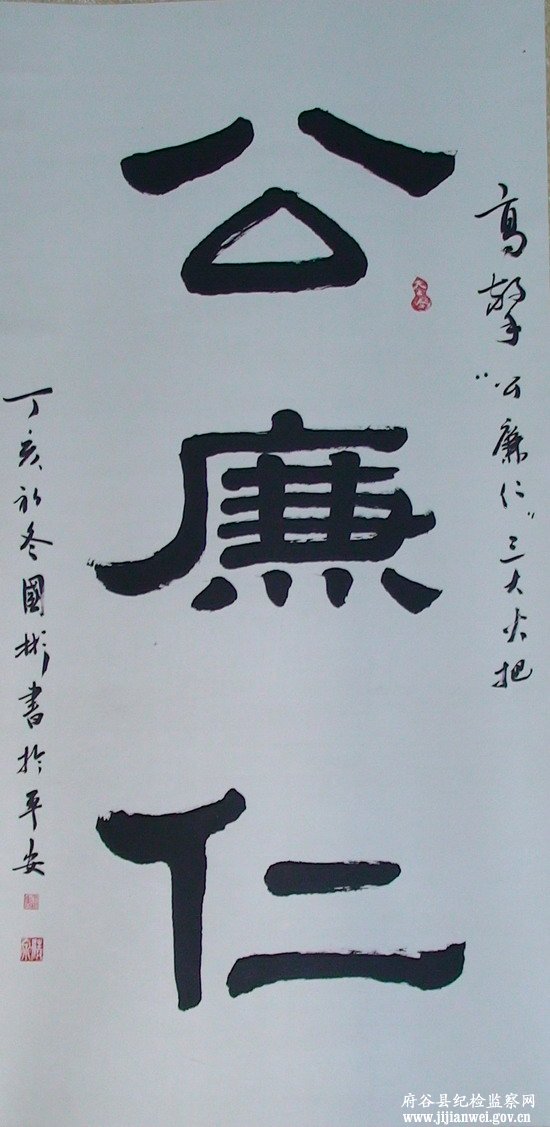 高擎“公廉仁”三大火把
公廉仁
丁亥初冬國彬書於平安
府谷县纪检监察网
www.jijianwei.gov.cn